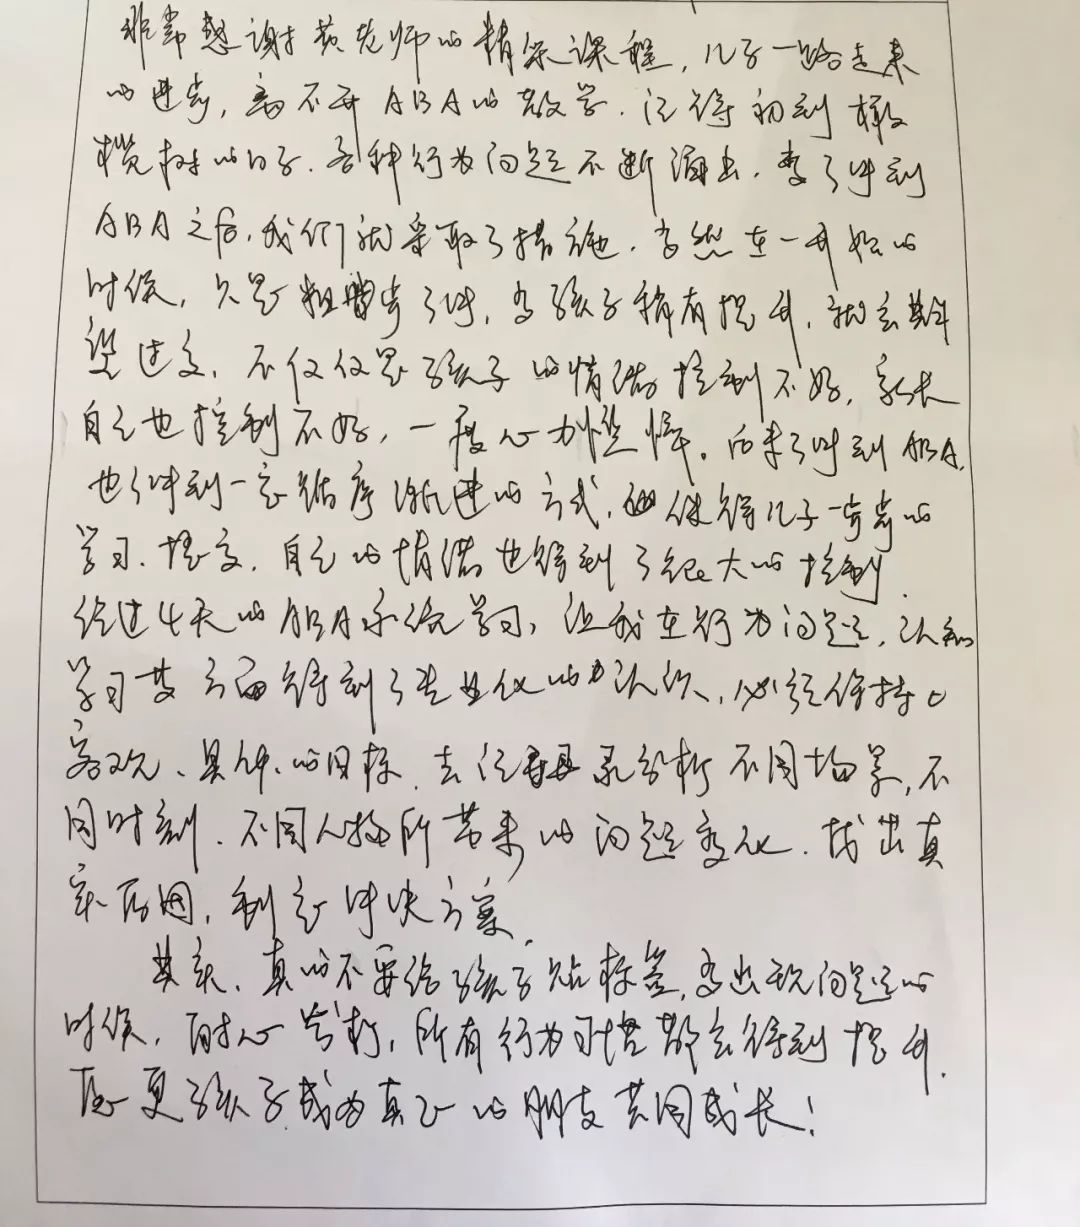 非常感谢黄老师的精采课程，儿子一路走来
的进步，离不开ABA的教学．记得初到橄
榄树的日子．各种行为问题不断涌出．李了解到
ABA之后，我们就采取了措施．当然在一开始的
时候，只是粗略了解，当孩子稍有提升，就会期
望过高，不仅仅是孩子的情绪控制不好，家长
自己也控制不好，一度心力憔悴。后来了解到ABA，
也了解到一定循序渐进的方式，使得儿子一步步的
学习、提高．自己的情绪也得到了很大的控制．
经过4天的ABA系统学习，让我在行为问题，认知
学习等方面得到了专业化的认识，必须保持
客观、具体、的目标．去记录分析不同场景，不
同时刻．不同人物所带来的问题变化．找出真
实原因，制定解决方案．
其实、真的不要给孩子贴标签，当出现问题的
时候，耐心分析，所有行为习惯都会得到提升．
愿更孩子成为真正的朋友共同成长！